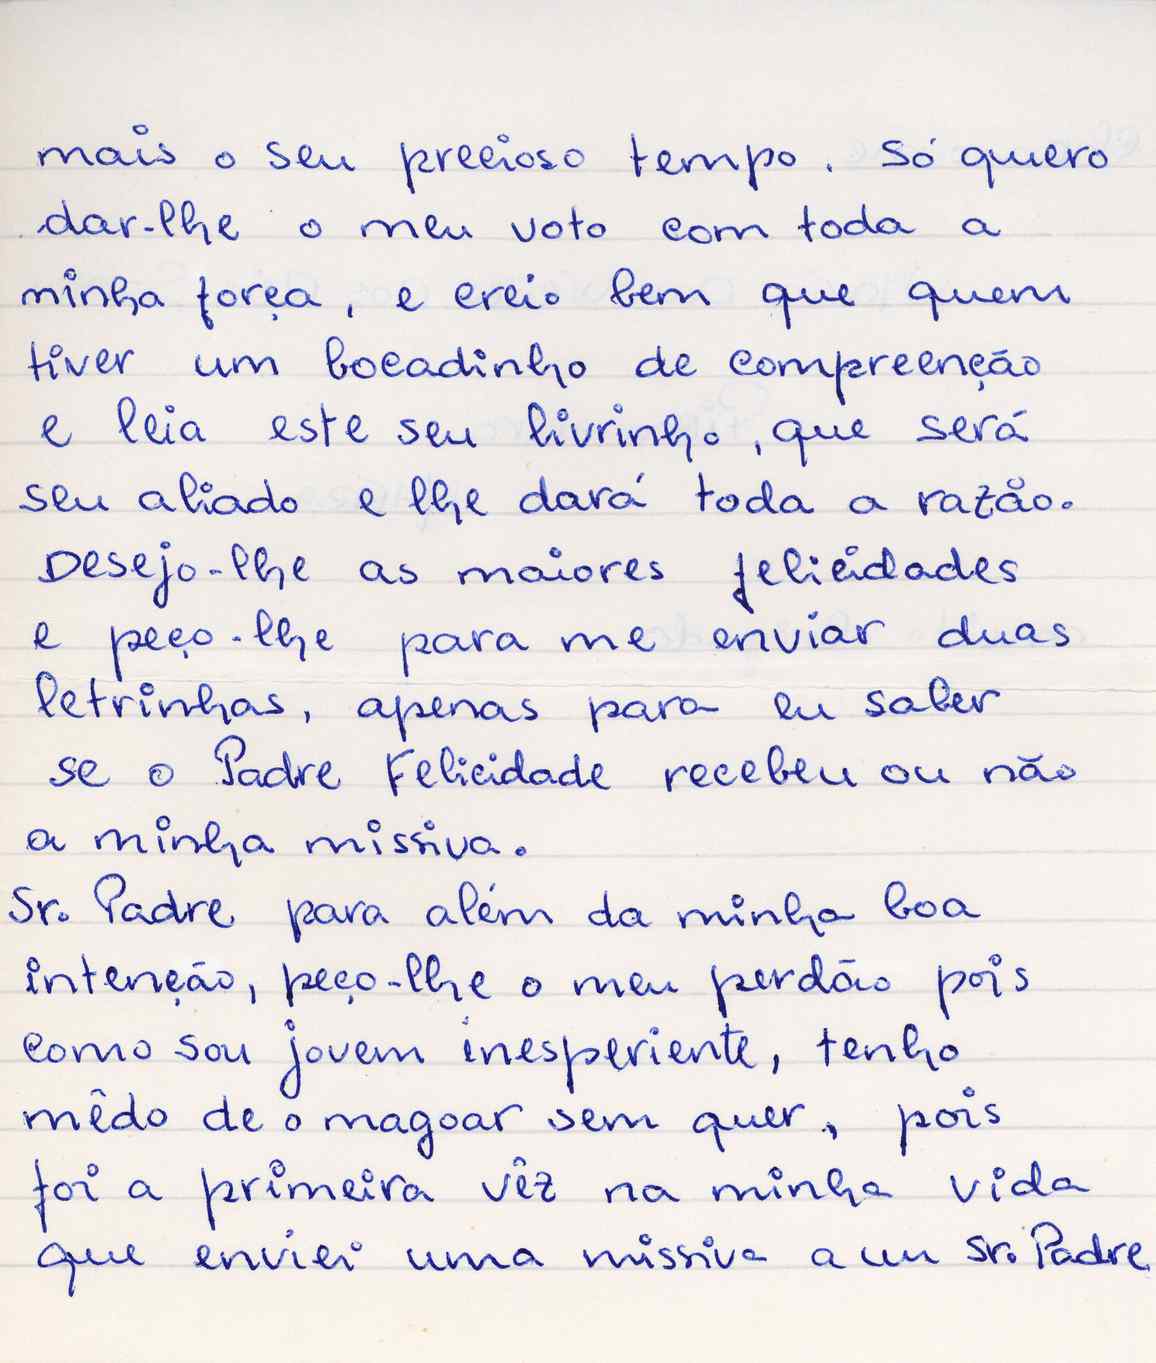 mais o seu precioso tempo. Só quero
dar-lhe o meu voto com toda a
minha força, e creio bem que quem
tiver um bocadinho de compreenção
e leia este seu livrinho, que será
seu aliado e lhe dará toda a razão.
Desejo-lhe as maiores felicidades
e peço-lhe para me enviar duas
letrinhas, apenas para eu saber
se o Padre Felicidade recebeu ou não
a minha missiva.
Sr. Padre para além da minha boa
intenção, peço-lhe o meu perdão pois
como sou jovem inesperiente, tenho
mêdo de o magoar sem quer, pois
foi a primeira vêz na minha vida
que enviei uma missiva a um Sr. Padre